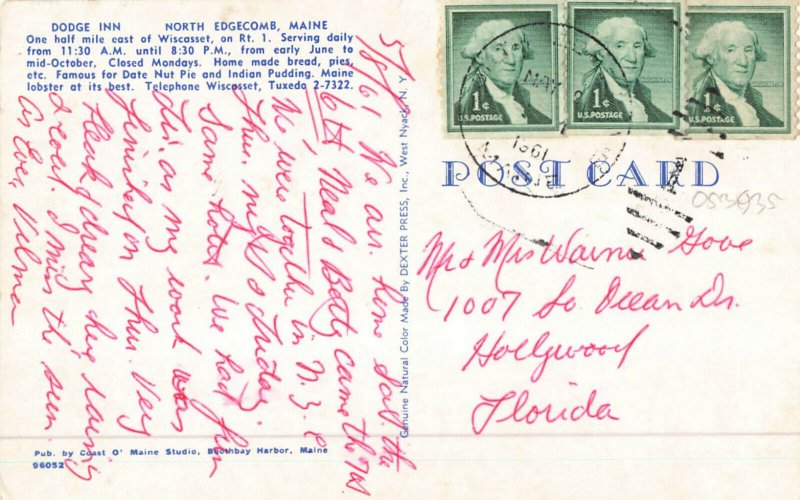 DODGE INN NORTH EDGECOMB, MAINE
One half mile east of Wiscasset, on Rt. 1. Serving daily
from 11:30 A.M. until 8:30 P.M., from early June to
mid-October, Closed Mondays. Home made bread, pies,
etc. Famous for Date Nut Pie and Indian Pudding. Maine
lobster at its best. Telephone Wiscasset, Tuxedo 2-7322.
5/8/61 We arr. home Sat. the
6th. Neal & Betty came the 1st
We were together in N.Y.C
Thur. night & Friday.
Same hotel. We had fun
tho' as my work was
finished on Thur. Very
bleak & dreary here raining
& cold. I miss the sun.
As Ever, Velma
Pub. by Coast O' Maine Studio, Boothbay Harbor, Maine
96052
Genuine Natural Color Made By DEXTER PRESS, Inc., West Nyack, N. Y.
1¢ U.S.POSTAGE WASHINGTON
1¢ U.S.POSTAGE WASHINGTON
1¢ U.S.POSTAGE WASHINGTON
MAY
1961
POST CARD
053935
Mr & Mrs Warner Gove
1007 So. Ocean Dr.
Hollywood
Florida